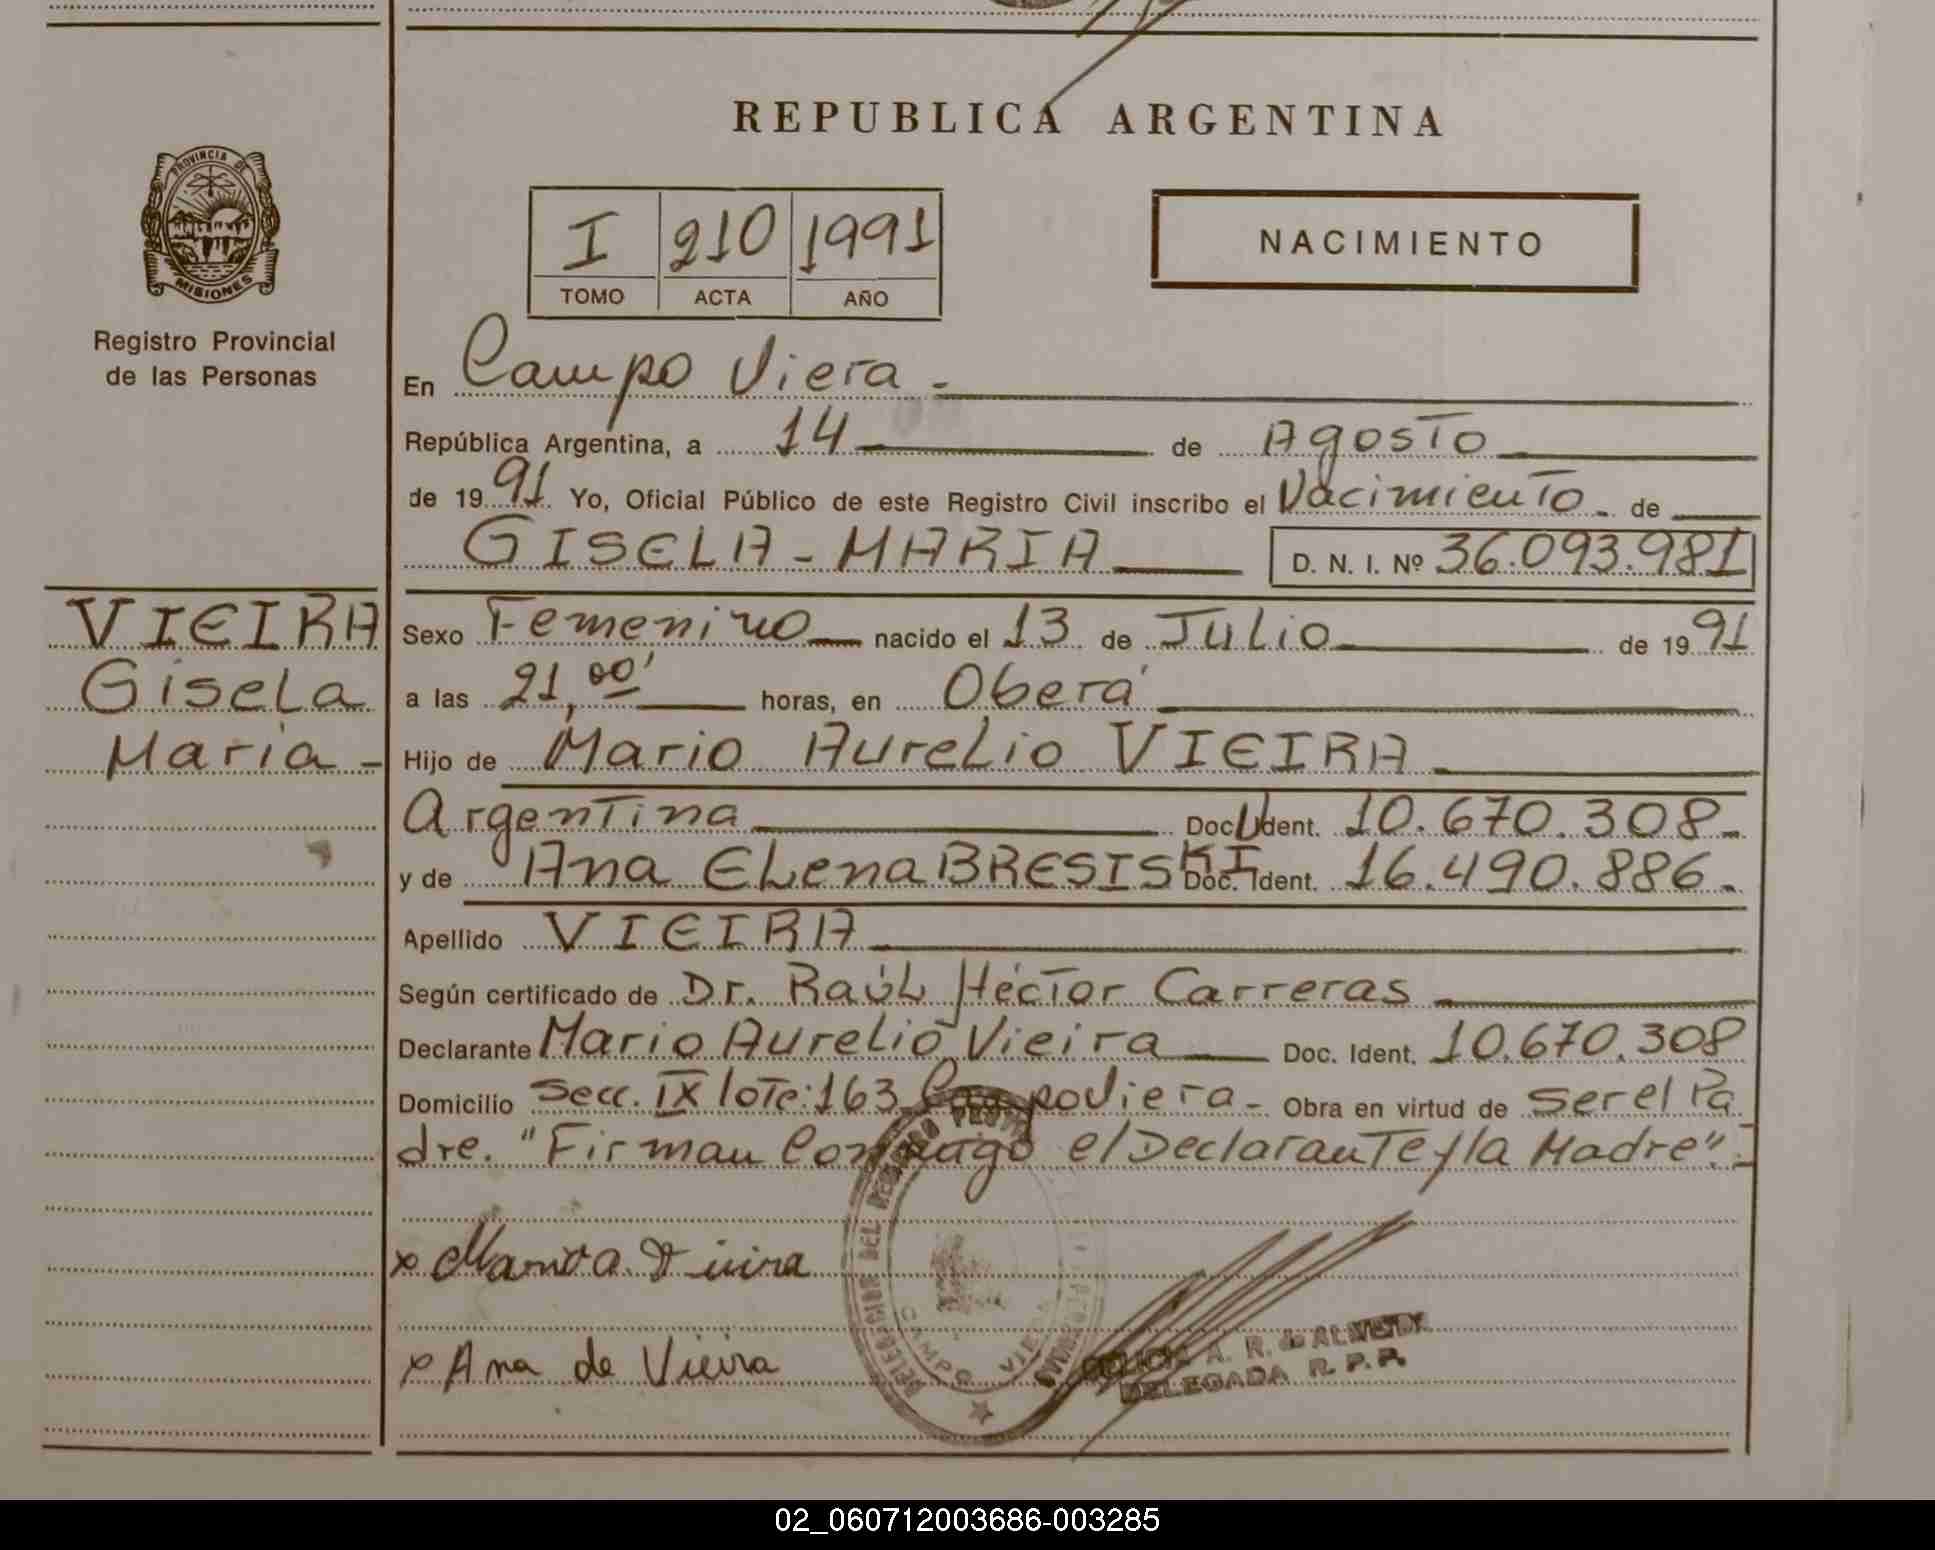 REPUBLICA ARGENTINA
PROVINCIA DE
MISIONES
Registro Provincial
de las Personas
I 210 1991
TOMO ACTA AÑO
NACIMIENTO
En Campo Viera -
República Argentina, a 14 de Agosto
de 1991 Yo, Oficial Público de este Registro Civil inscribo el Nacimiento - de
GISELA - MARIA D. N. I. Nº 36.093.981
VIEIRA
Gisela
Maria -
Sexo Femenino nacido el 13 de Julio de 1991
a las 21,00' horas, en Oberá
Hijo de Mario Aurelio VIEIRA
Argentina Doc. Ident. 10.670.308 -
y de Ana Elena BRESISKI Doc. Ident. 16.490.886 -
Apellido VIEIRA
Según certificado de Dr. Raúl Héctor Carreras
Declarante Mario Aurelio Vieira Doc. Ident. 10.670.308
Domicilio Secc. IX lote: 163 Campo Viera - Obra en virtud de ser el Pa
dre. "Firman Conmigo el Declarante y la Madre". -
x Mario A. Vieira
x Ana de Vieira
DELEGACION DEL REGISTRO
CAMPO VIERA
A. R. de
DELEGADA R. P. P.
02_060712003686-003285